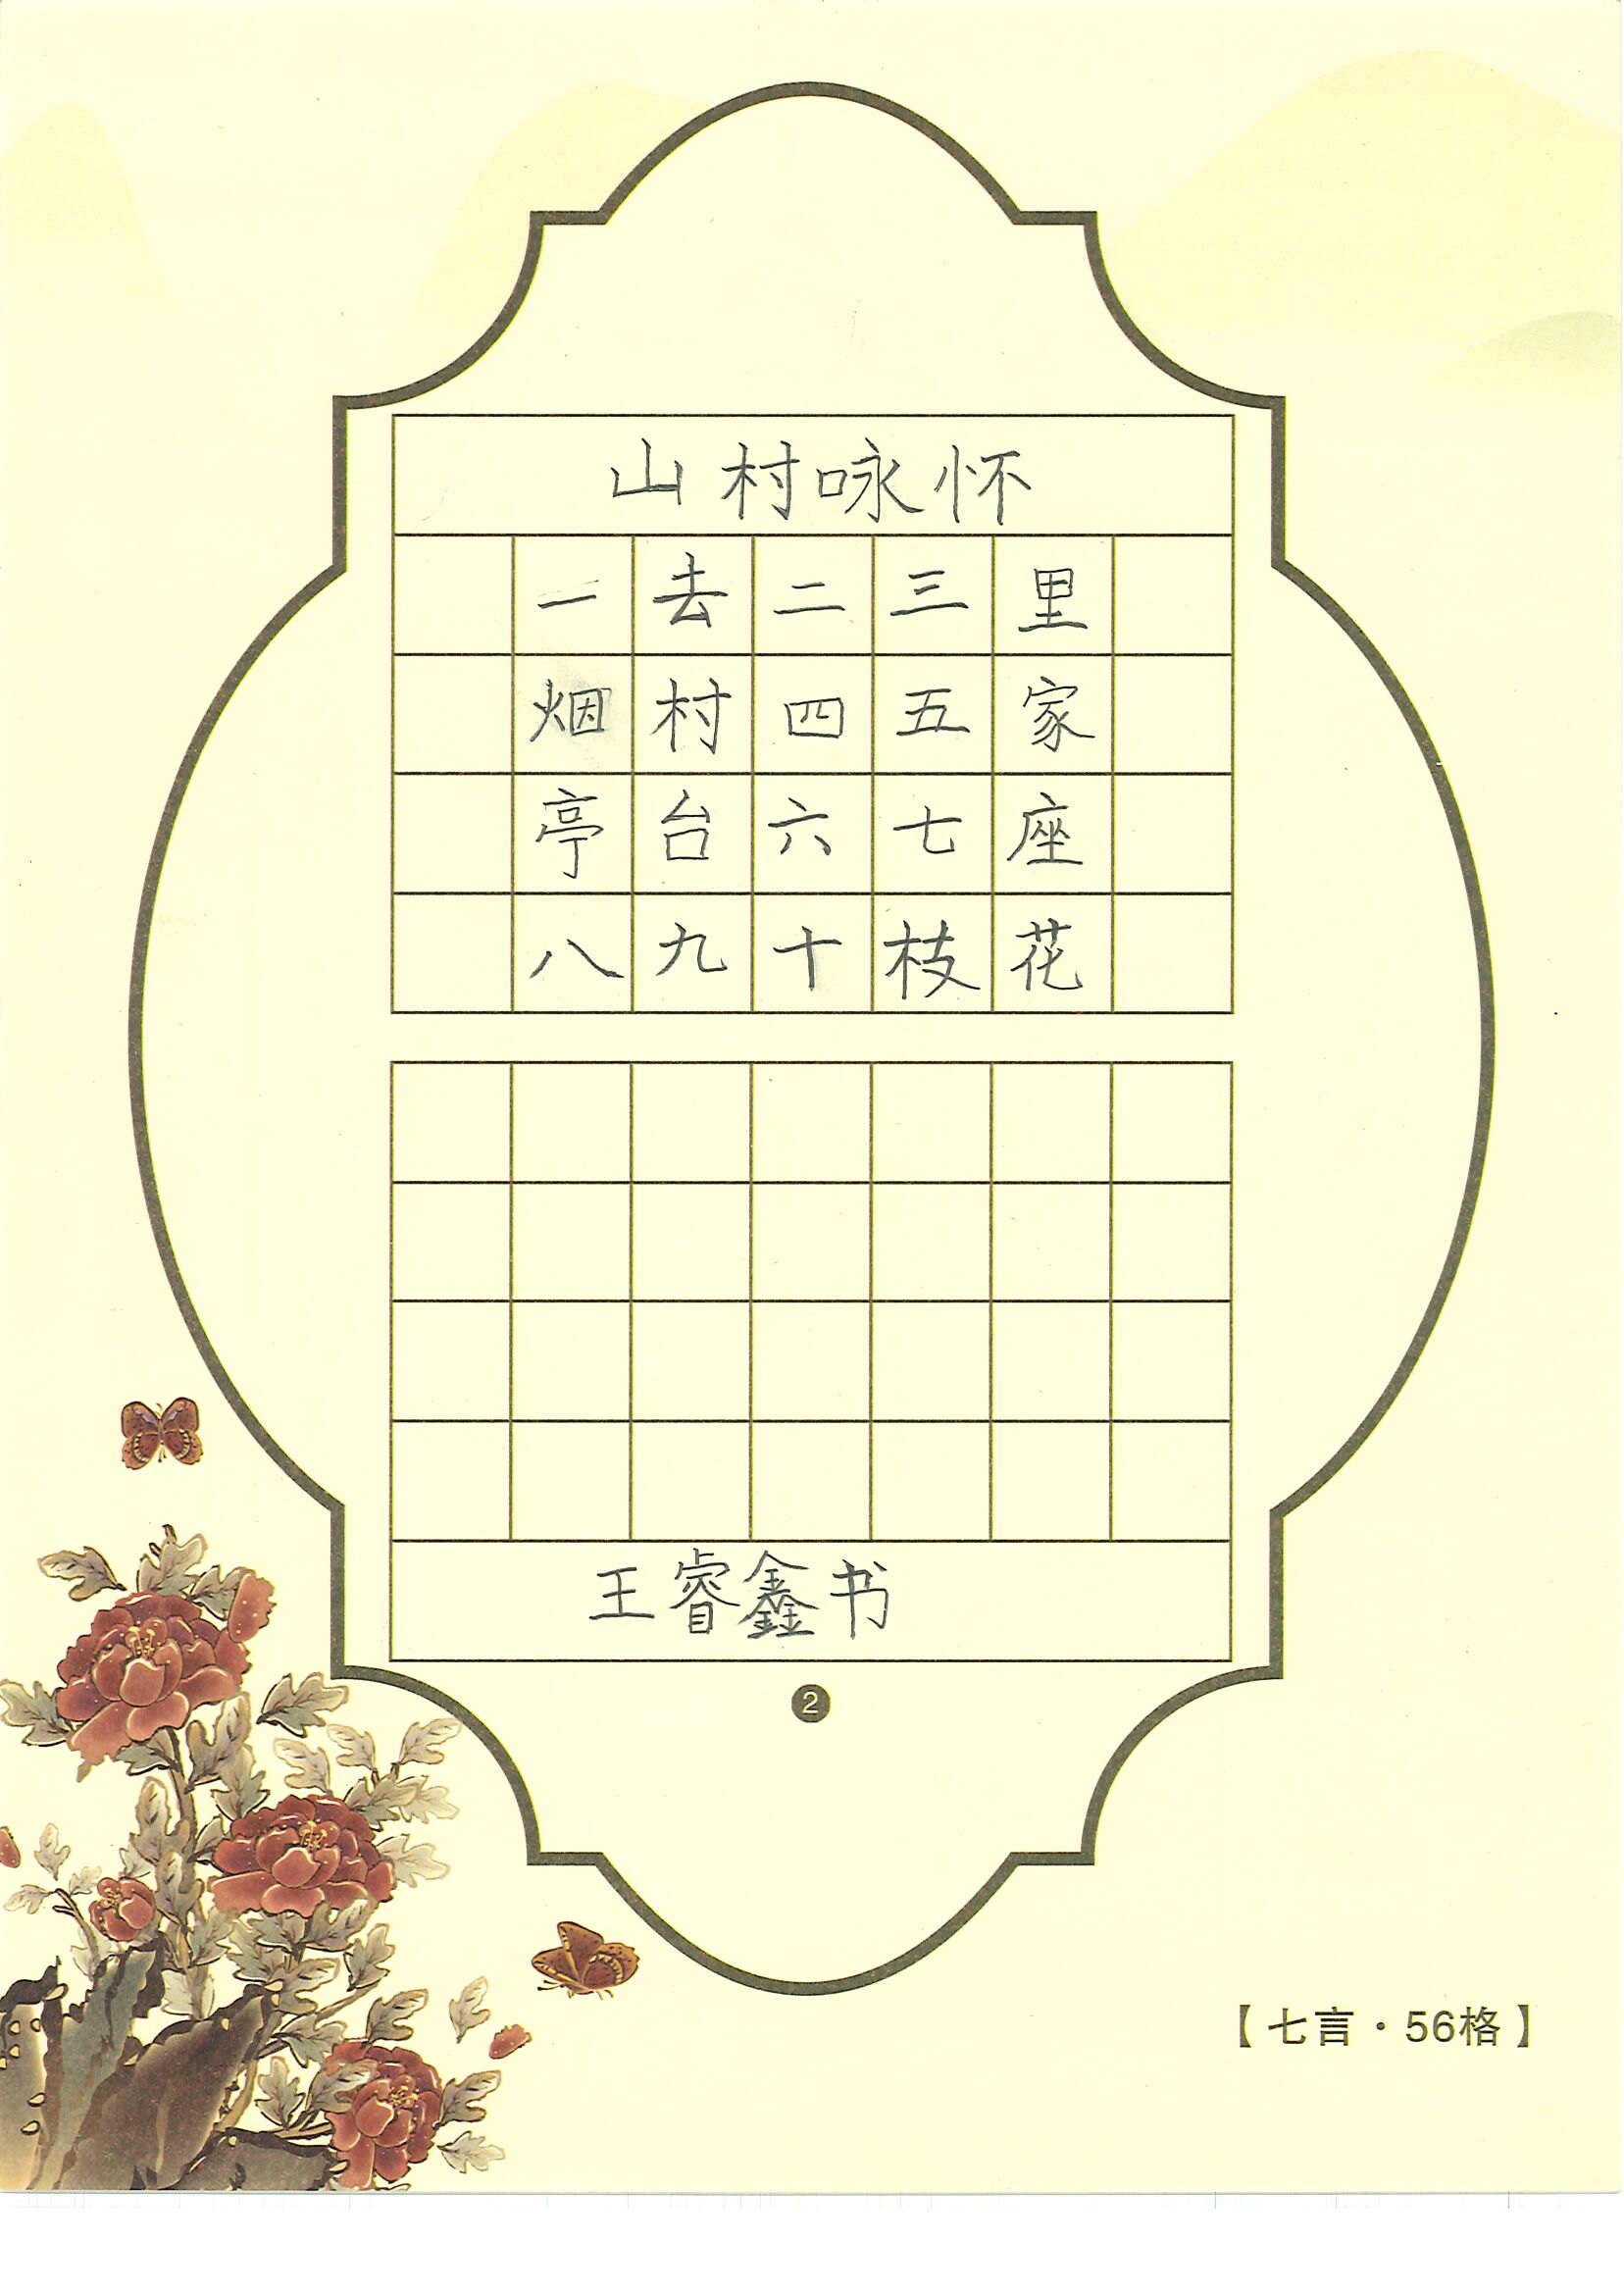 山村咏怀
一去二三里
烟村四五家
亭台六七座
八九十枝花
王睿鑫书
2
【七言·56格】